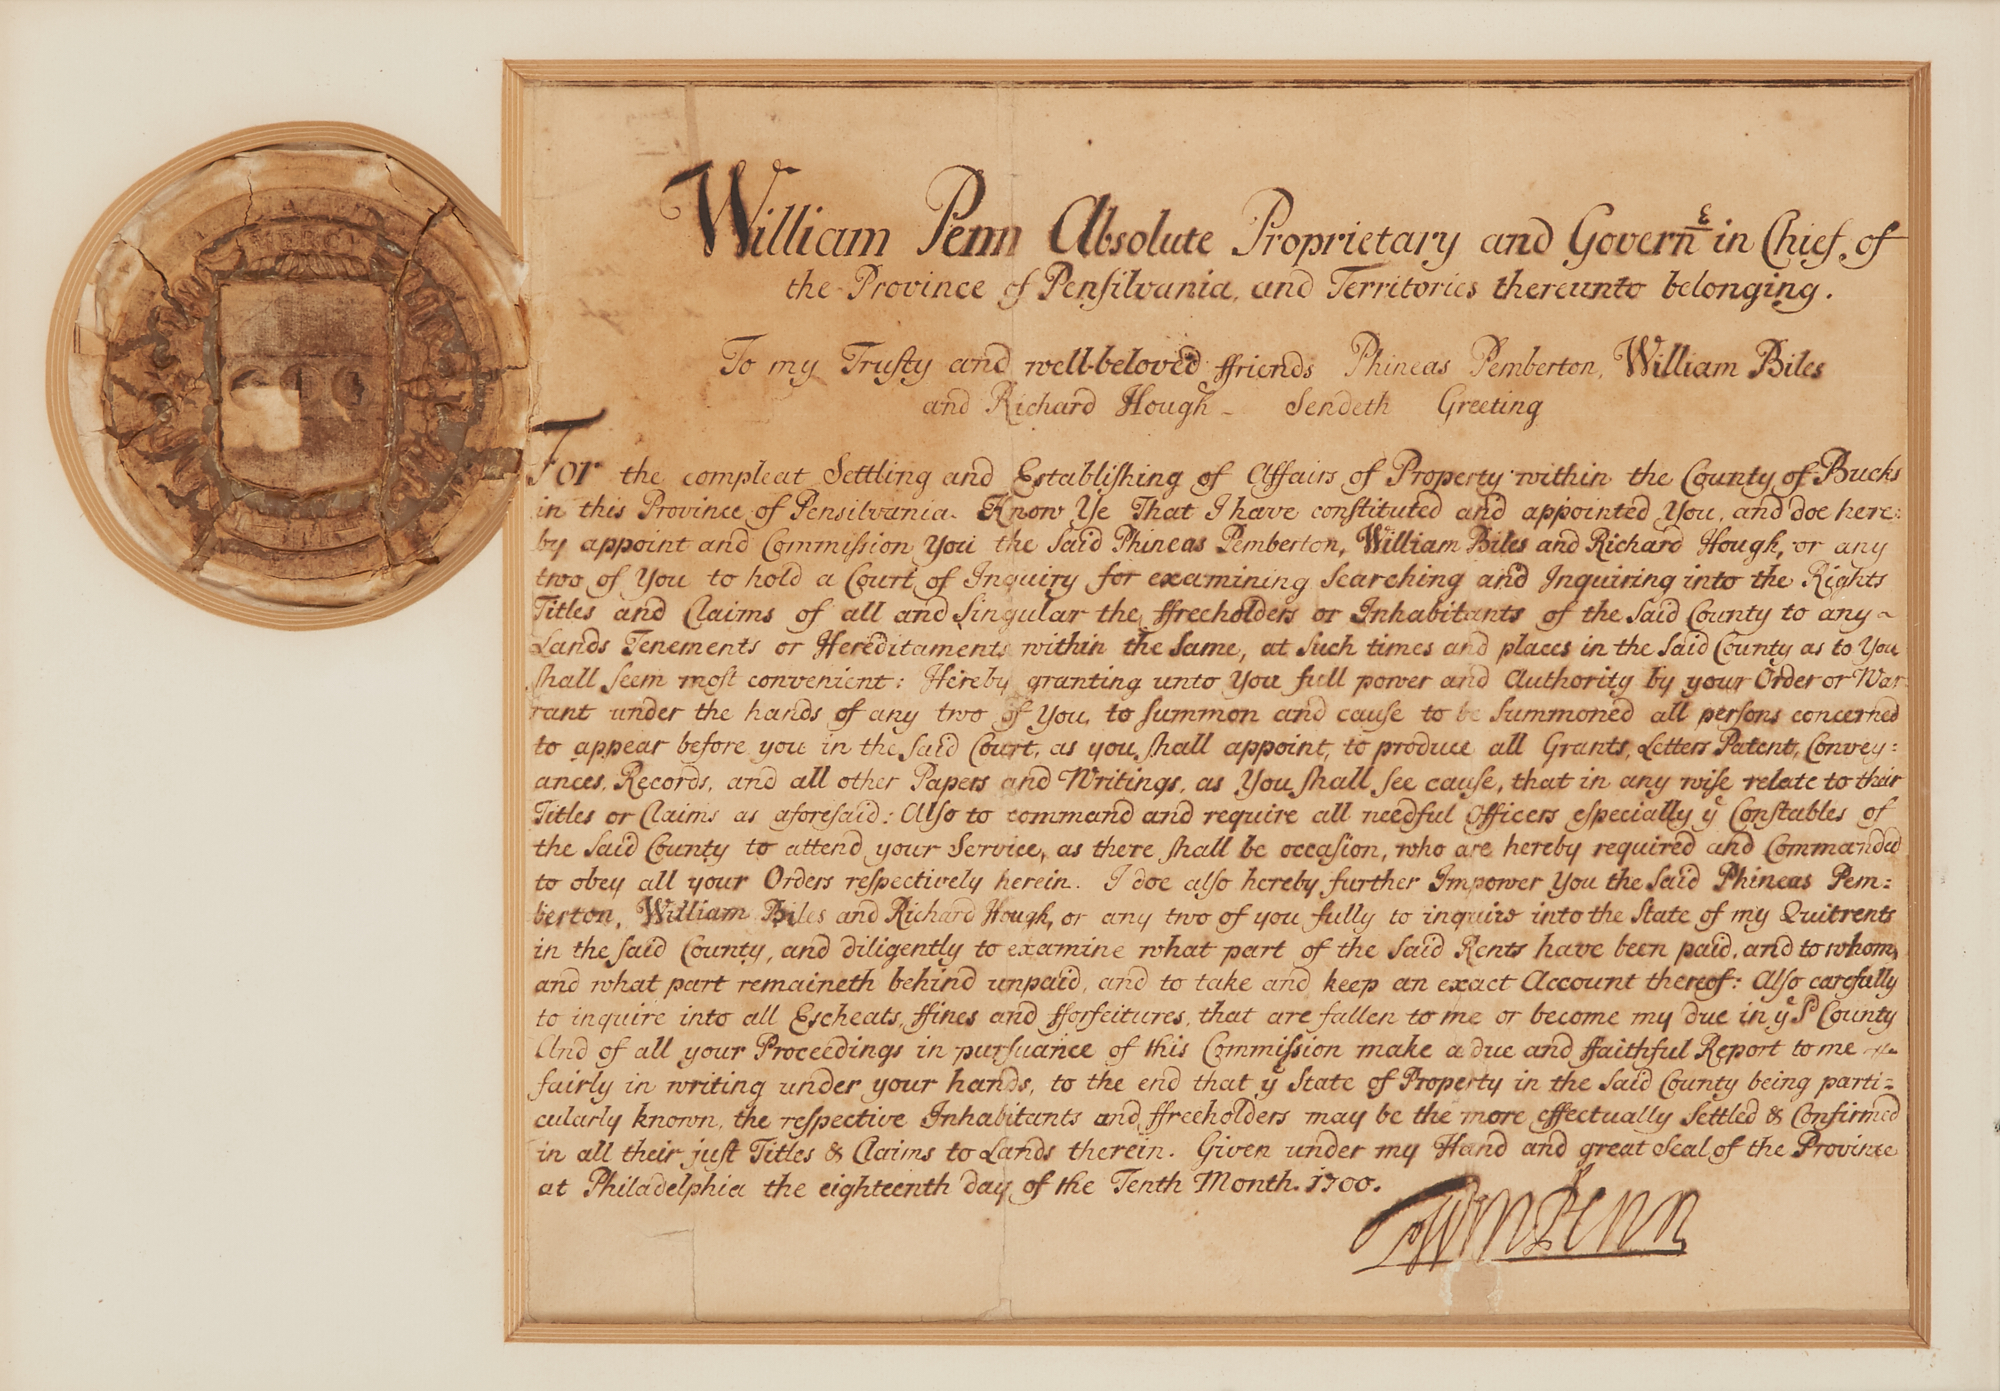 MERCY
William Penn Absolute Proprietary and Govern^r in Chief of
the Province of Pensilvania, and Territories thereunto belonging.
To my Trusty and well-beloved ffriends Phineas Pemberton, William Biles
and Richard Hough - Sendeth Greeting
For the compleat Settling and Establishing of Affairs of Property within the County of Bucks
in this Province of Pensilvania. Know Ye That I have constituted and appointed You, and doe here:
by appoint and Commission You the said Phineas Pemberton, William Biles and Richard Hough, or any
two of You to hold a Court of Inquiry for examining Searching and Inquiring into the Rights
Titles and Claims of all and Singular the ffreeholders or Inhabitants of the said County to any
Lands Tenements or Hereditaments within the Same, at Such times and places in the said County as to You
shall Seem most convenient: Hereby granting unto You full power and Authority by your Order or War
rant under the hands of any two of You, to summon and cause to be Summoned all persons concerned
to appear before you in the said Court, as you shall appoint, to produce all Grants, Letters Patent, Convey:
ances, Records, and all other Papers and Writings, as You shall See cause, that in any wise relate to their
Titles or Claims as aforesaid: Also to command and require all needful Officers especially y^e Constables of
the said County to attend your Service, as there shall be occasion, who are hereby required and Commanded
to obey all your Orders respectively herein. I doe also hereby further Impower You the said Phineas Pem:
berton, William Biles and Richard Hough, or any two of you fully to inquire into the State of my Quitrents
in the said County, and diligently to examine what part of the said Rents have been paid, and to whom,
and what part remaineth behind unpaid, and to take and keep an exact Account thereof: Also carefully
to inquire into all Escheats, ffines and fforfeitures, that are fallen to me or become my due in y^e S^d County
And of all your Proceedings in pursuance of this Commission make a due and ffaithful Report to me
fairly in writing under your hands, to the end that y^e State of Property in the said County being parti:
cularly known, the respective Inhabitants and ffreeholders may be the more effectually Settled & Confirmed
in all their just Titles & Claims to Lands therein. Given under my Hand and great Seal of the Province
at Philadelphia the eighteenth day of the Tenth Month. 1700.
Wm Penn